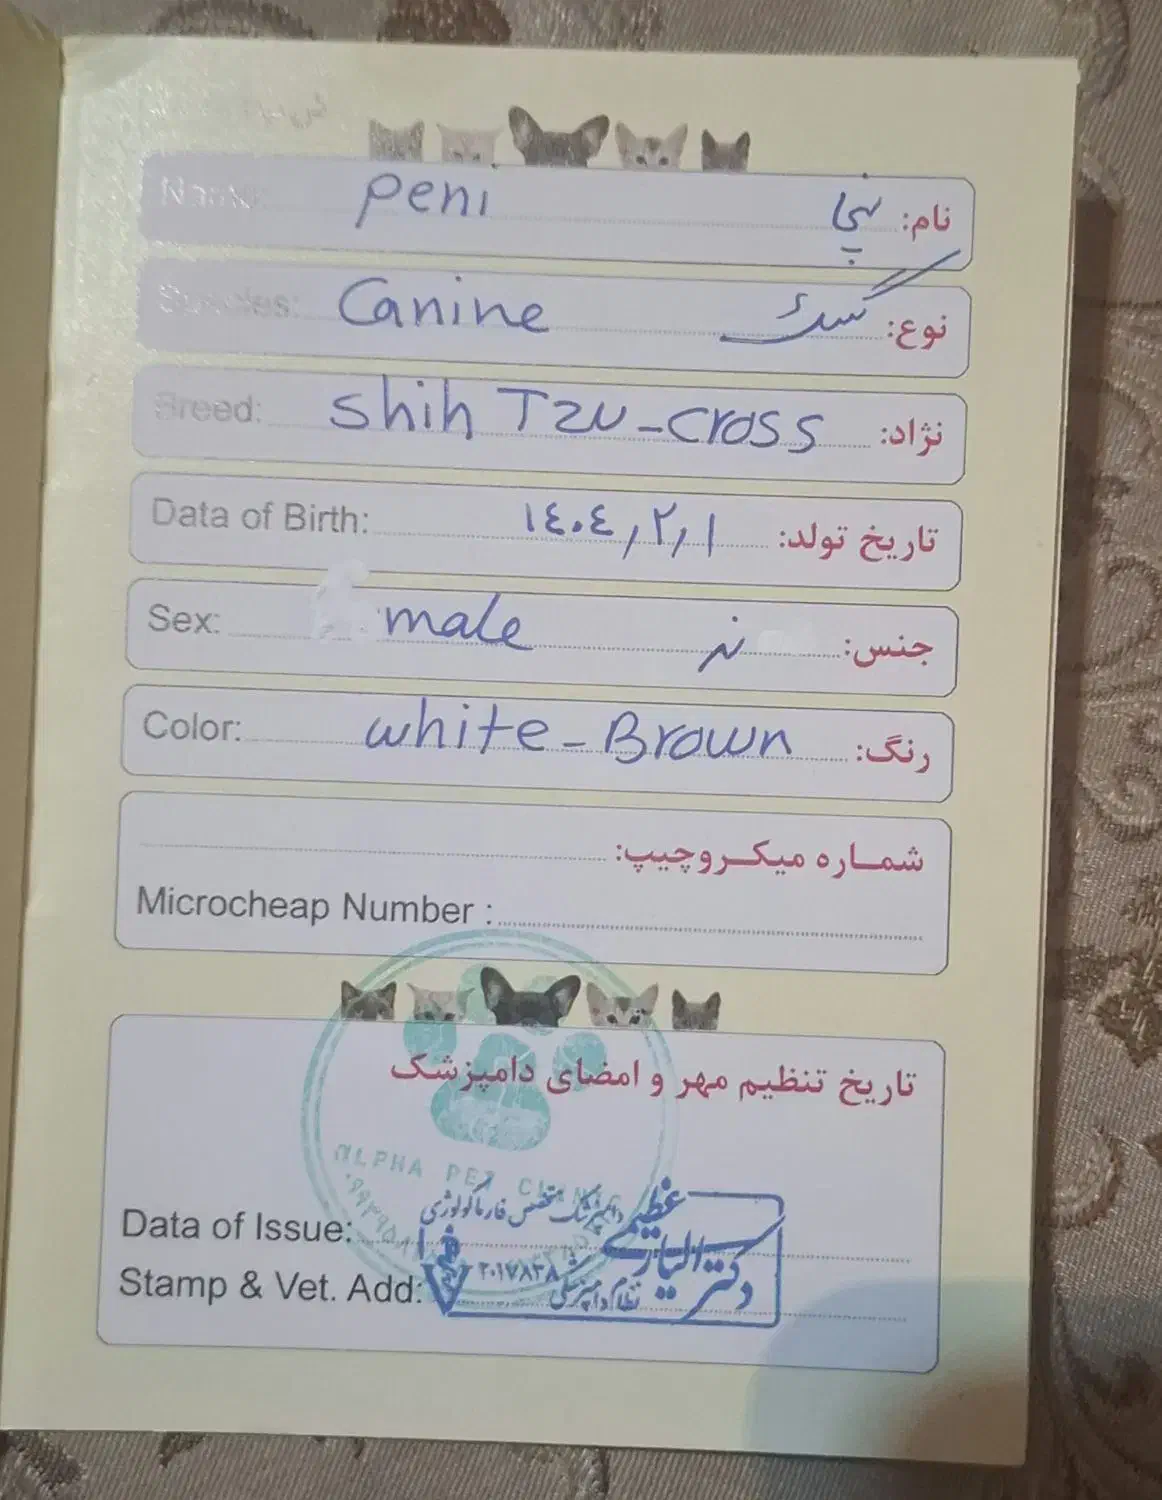 Name: peni
نام: پنجا
Species: Canine
نوع: سگ
Breed: Shih Tzu-cross
نژاد:
Data of Birth:
تاریخ تولد: ١٤٠٤,٢,١
Sex: male
جنس: نر
Color: white-Brown
رنگ:
شماره میکروچیپ:
Microcheap Number :
تاریخ تنظیم مهر و امضای دامپزشک
ALPHA PET CLINIC
Data of Issue:
دامپزشک متخصص فارماکولوژی
Stamp & Vet. Add:
دکتر الیار عظیمی
نظام دامپزشکی